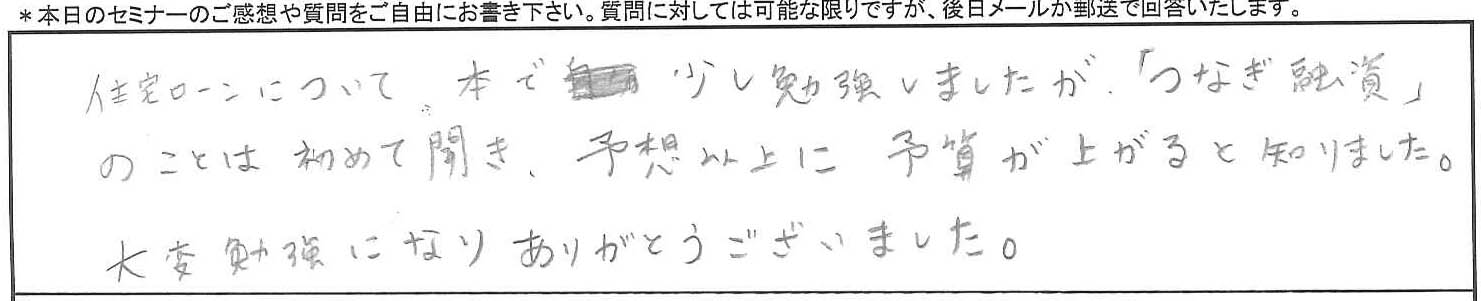 *本日のセミナーのご感想や質問をご自由にお書き下さい。質問に対しては可能な限りですが、後日メールか郵送で回答いたします。
住宅ローンについて、本で少し勉強しましたが、「つなぎ融資」
のことは初めて聞き、予想以上に予算が上がると知りました。
大変勉強になりありがとうございました。